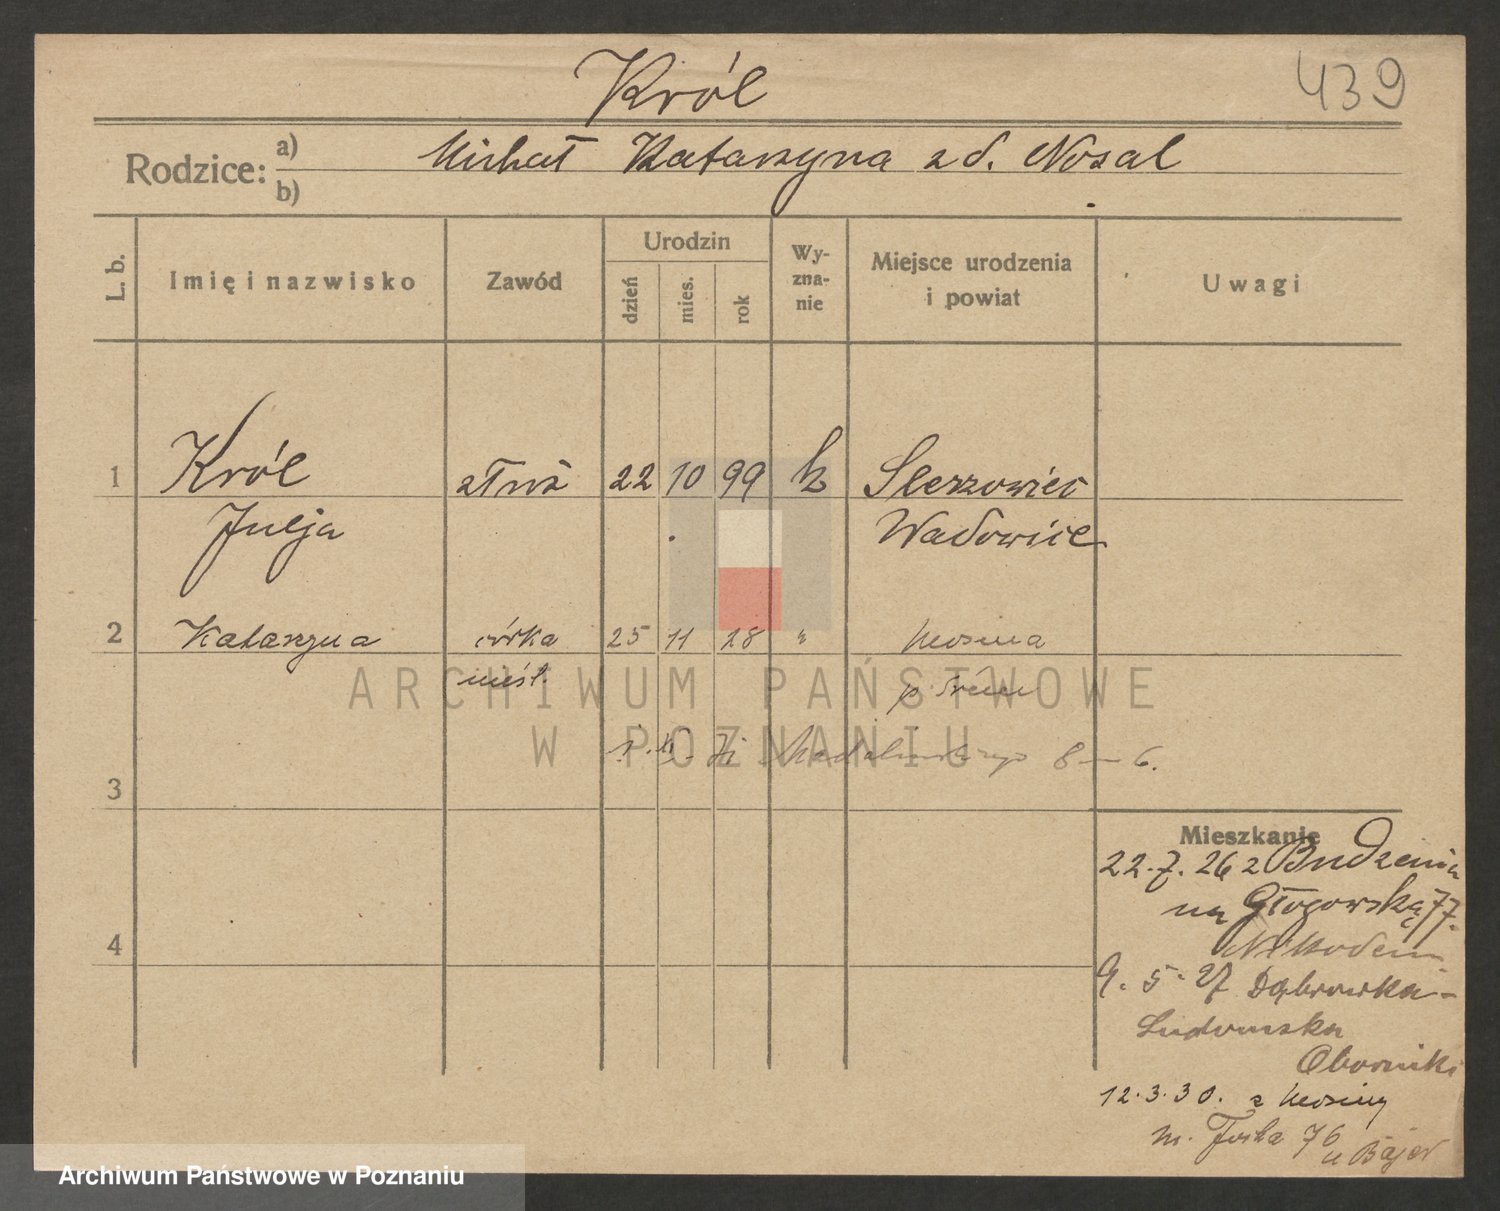 Król
439
Rodzice:
a) Michał Katarzyna z d. Nosal
b)
L. b.
Imię i nazwisko
Zawód
Urodzin
dzień
mies.
rok
Wy-
zna-
nie
Miejsce urodzenia
i powiat
Uwagi
1 Król 22 10 99 k
Julja Wadowice
2 Katarzyna córka 25 11 28 " Mosina
nieśl. p. Śrem
8 – 6.
3
4
Mieszkanie
22.7.26 z Budzenia
na Głogowską 77.
Nikodem
9. 5. 27 Dąbrowka-
Ludomska
Oborniki
12.3.30. z Mosiny
76
u Bajer
ARCHIWUM PAŃSTWOWE
W POZNANIU
Archiwum Państwowe w Poznaniu